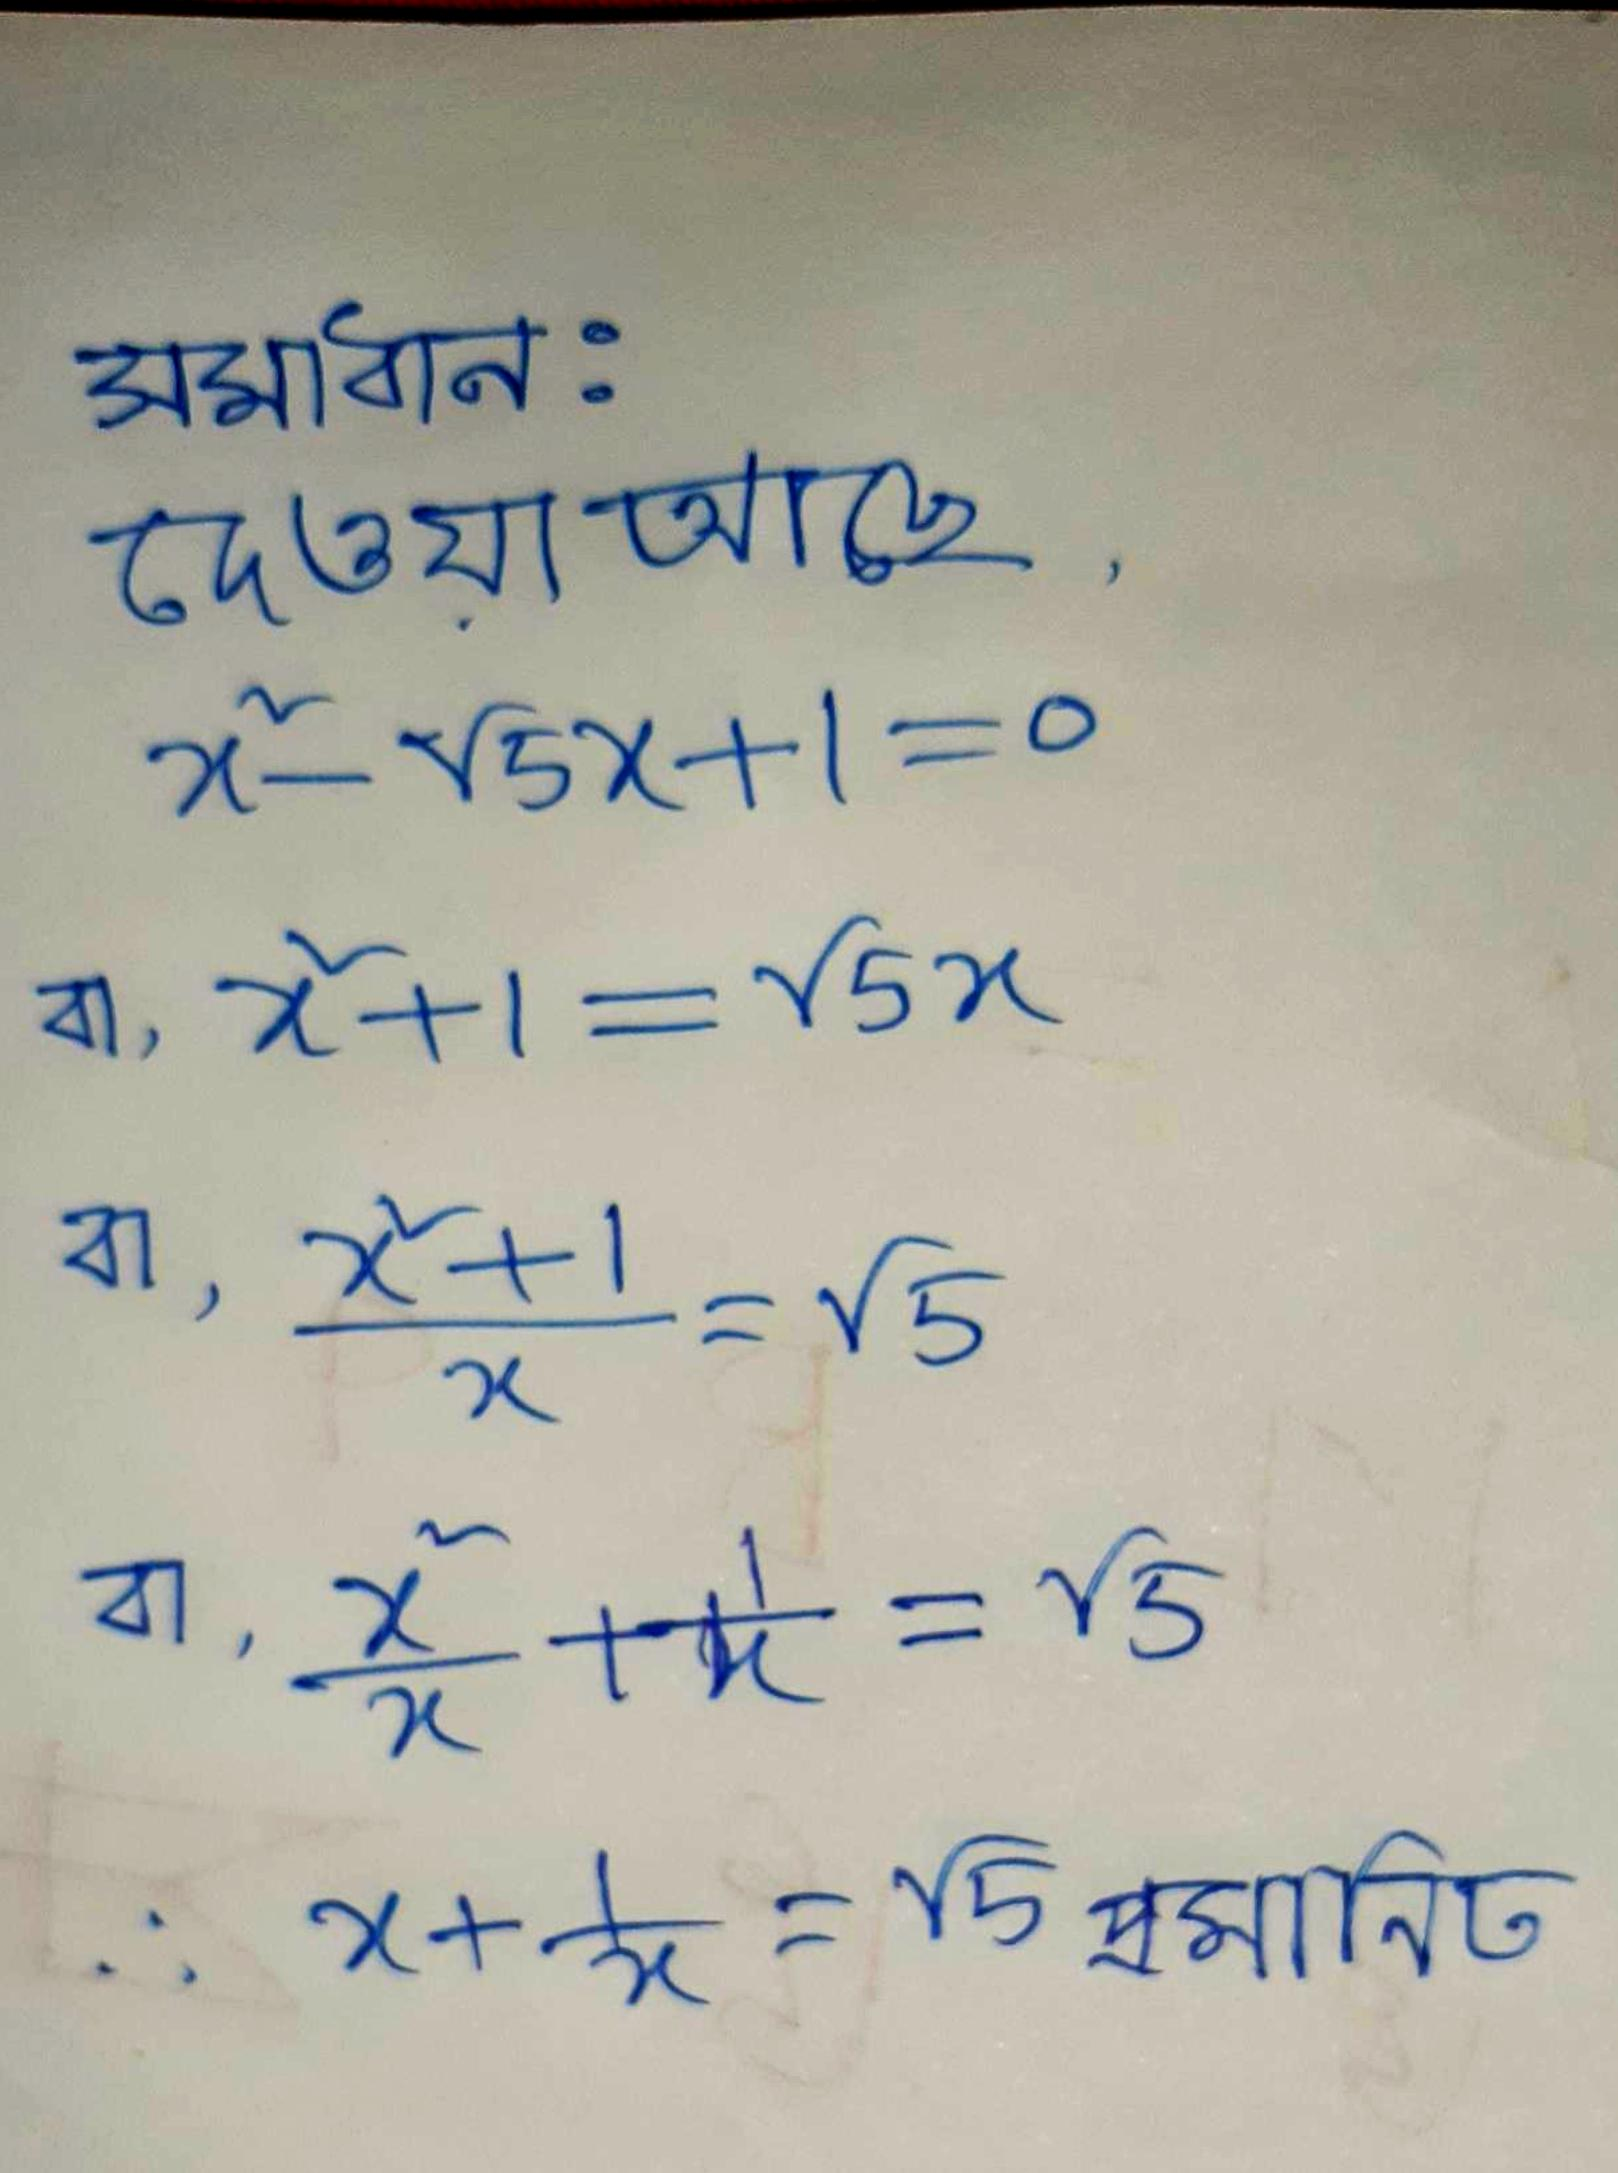 সমাধান:
দেওয়া আছে,
x² - √5x + 1 = 0
বা, x² + 1 = √5x
বা, (x² + 1)/x = √5
বা, x²/x + 1/x = √5
∴ x + 1/x = √5 প্রমানিত